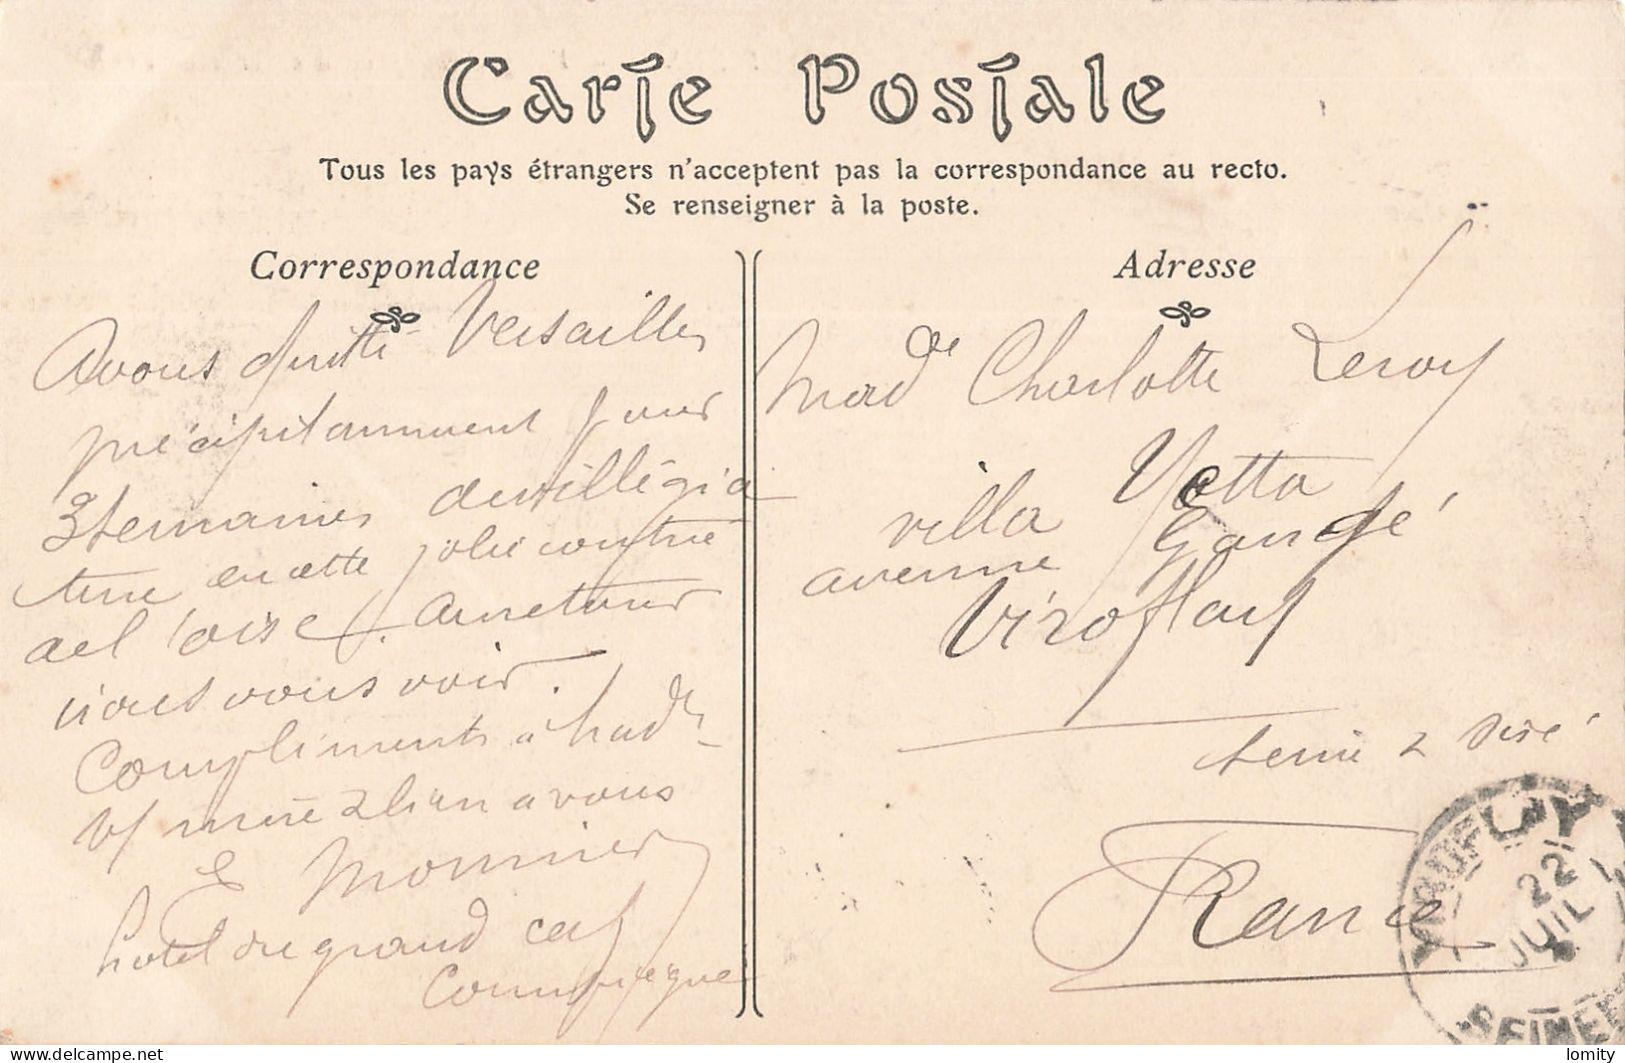 Carte Postale
Tous les pays étrangers n'acceptent pas la correspondance au recto.
Se renseigner à la poste.
Correspondance
Avons quitté Versailles
précipitamment pour
3 semaines de villégia
ture en cette jolie contrée
de l'oise. Au retour
irons vous voir.
Compliments à Mad
v/ mère & bien à vous
E Monnier
hotel du grand cerf
Compiègne
Adresse
Mad^e Charlotte Leroy
villa Yetta
avenue Gaugé
Viroflay
Seine & Oise
France
VIROFLAY
22
JUIL
SEINE ET
delcampe.net
lomity